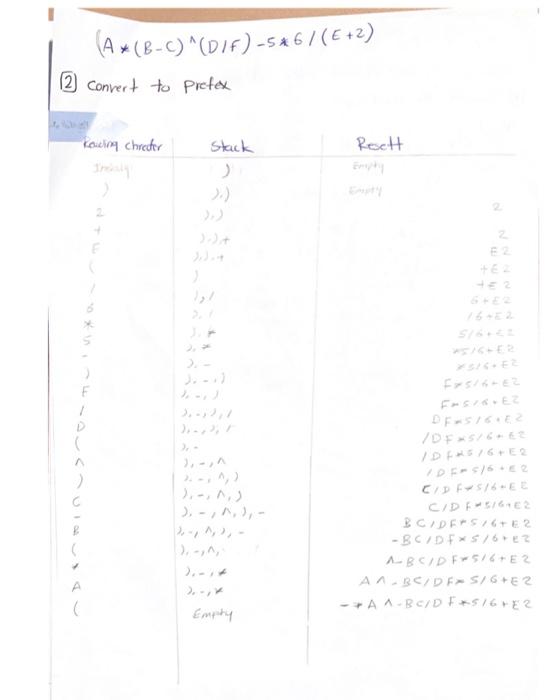 (A*(B-C)^(D/F)-5*6/(E+2)
2 Convert to Prefex
Reading chrecter Stack Resett
Inetialy ) Empty
) ),) Empty
2 ),) 2
+ ),),+ 2
E ),),+ E2
( ) +E2
/ ),/ +E2
6 ),/ 6+E2
* ),* /6+E2
5 ),* 5/6+E2
- ),- *5/6+E2
) ),-,) *5/6+E2
F ),-,) F*5/6+E2
/ ),-,),/ F*5/6+E2
D ),-,),/ DF*5/6+E2
( ),- /DF*5/6+E2
^ ),-,^ /DF*5/6+E2
) ),-,^,) /DF*5/6+E2
C ),-,^,) C/DF*5/6+E2
- ),-,^,),- C/DF*5/6+E2
B ),-,^,),- BC/DF*5/6+E2
( ),-,^, -BC/DF*5/6+E2
* ),-,* ^-BC/DF*5/6+E2
A ),-,* A^-BC/DF*5/6+E2
( Empty -*A^-BC/DF*5/6+E2